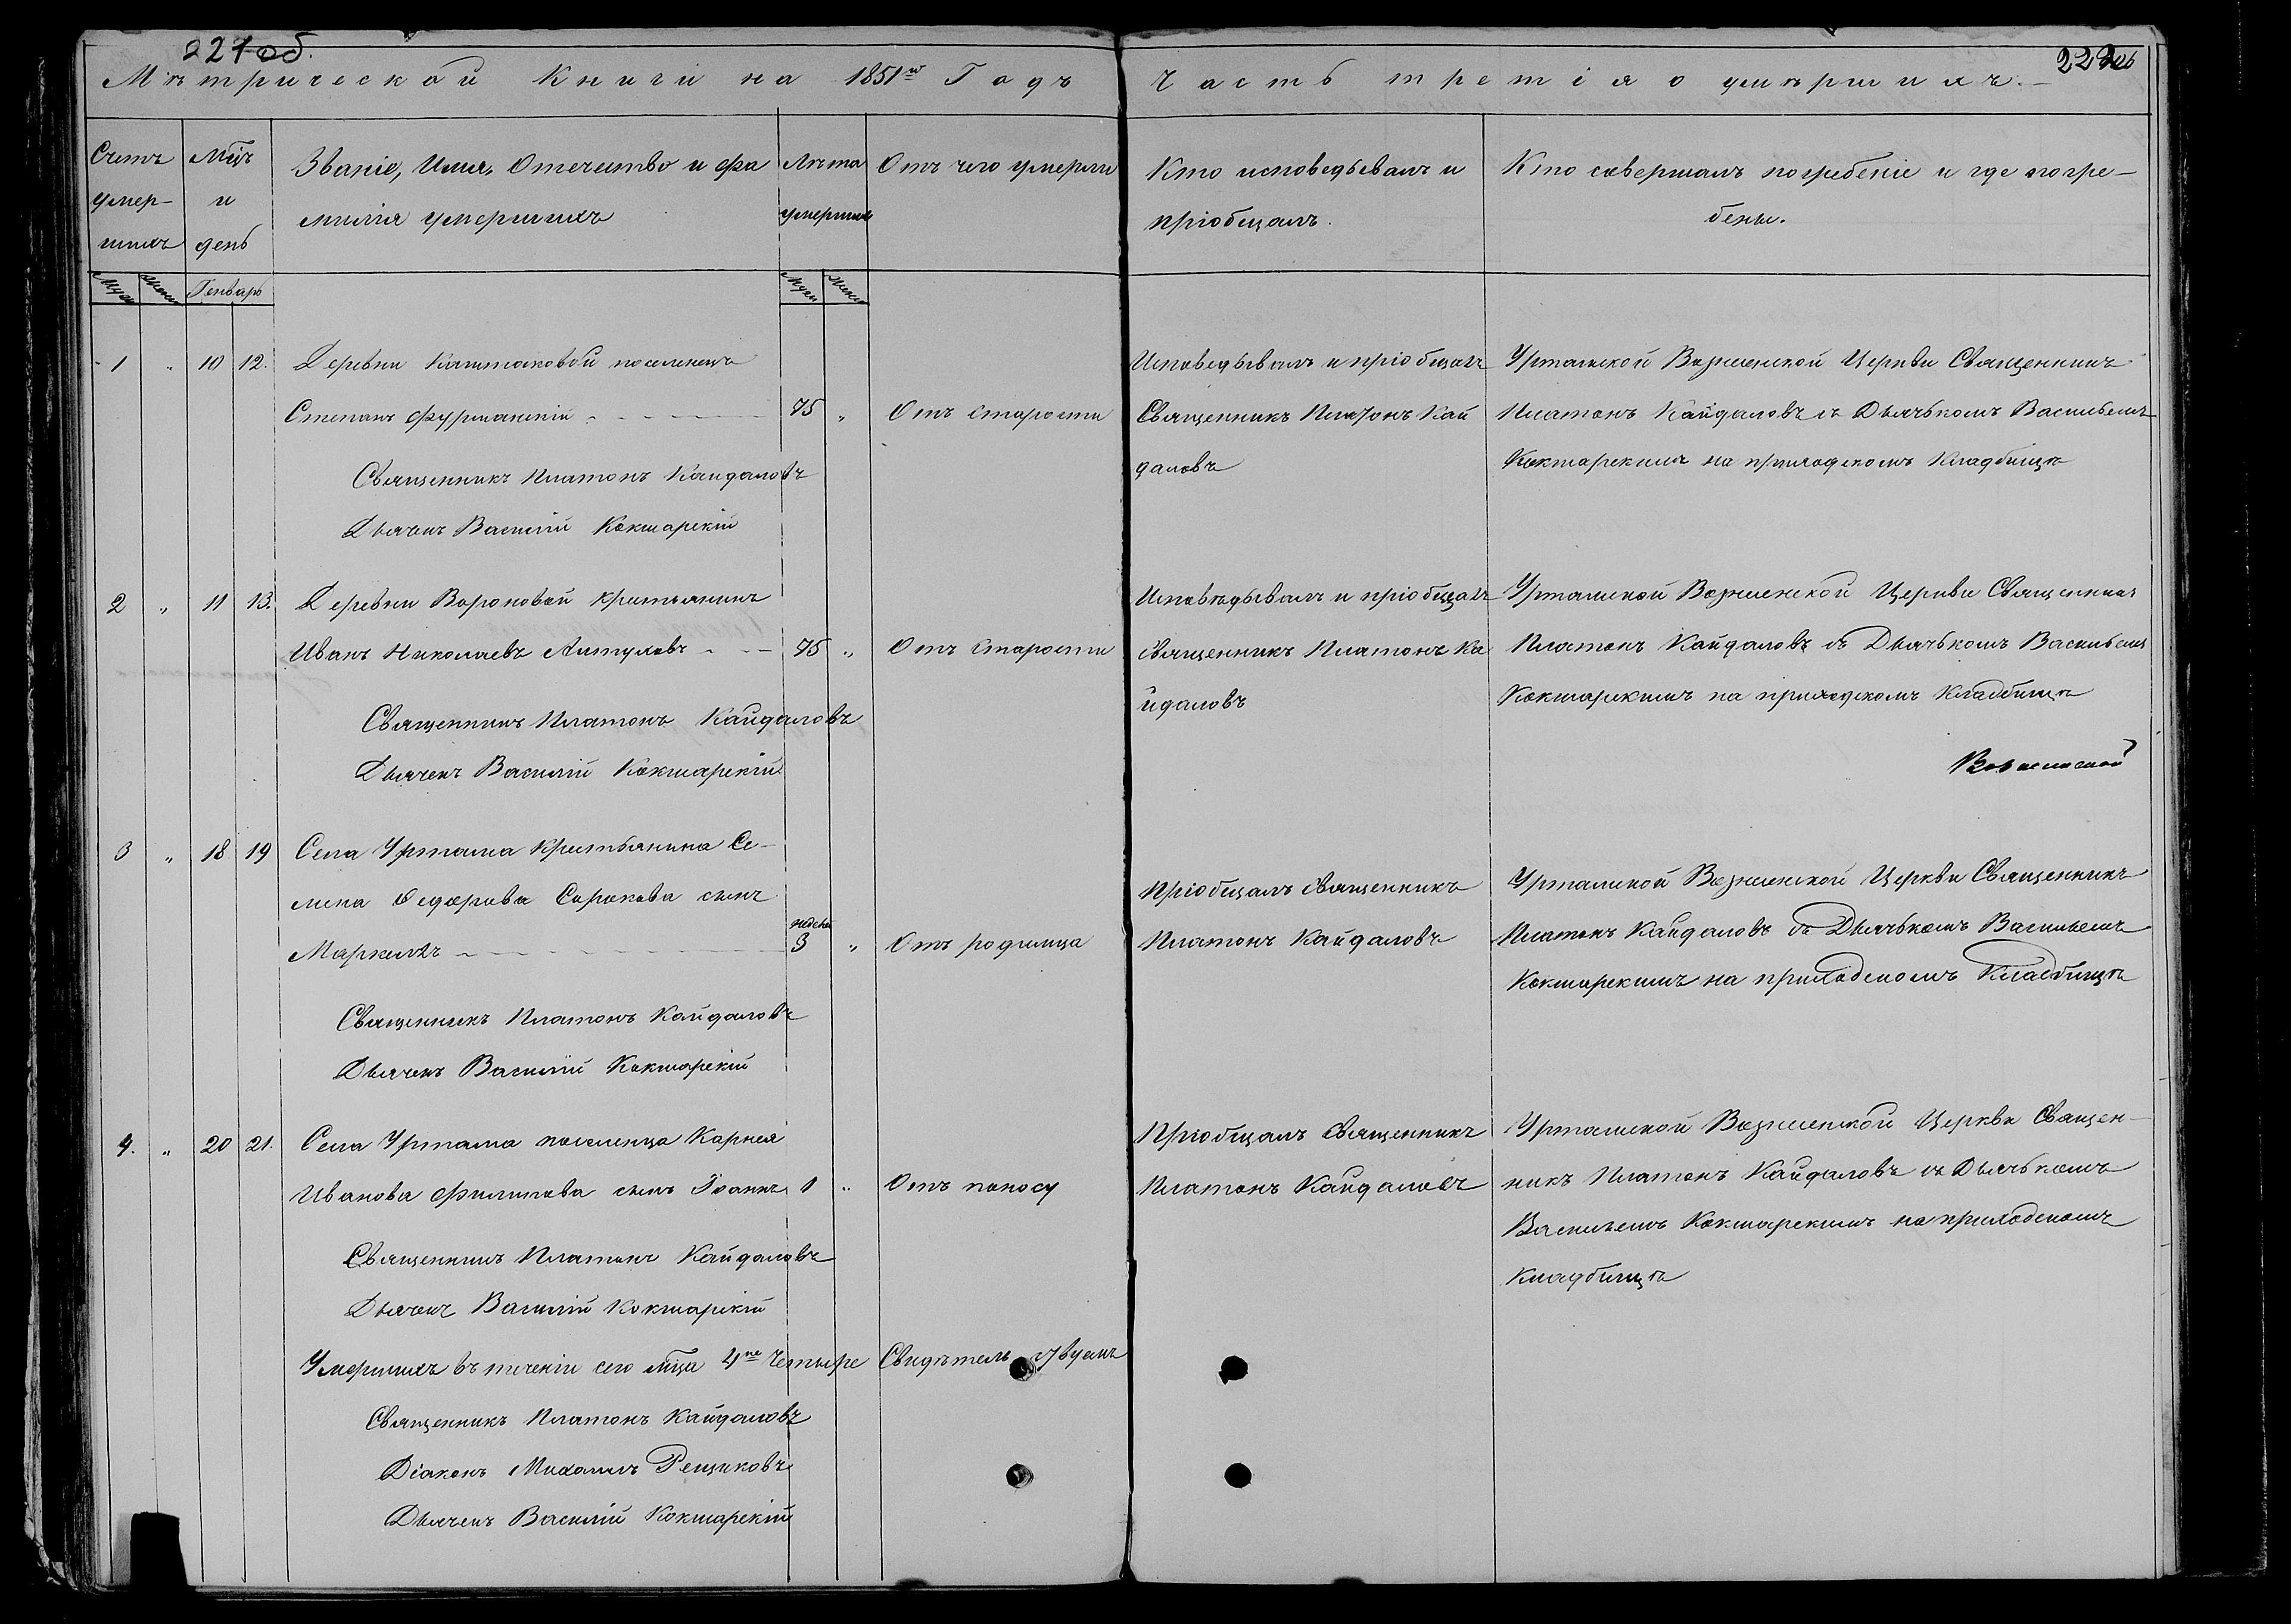 221 об.
Мѣтрической Книги на 1851й Годъ
Часть третія о умѣршихъ.
222
Счетъ умер-шихъ
Мцъ и день
Званіе, Имя, Отечество и фа
милія умершихъ
Лѣта умершихъ
Отъ чего умерли
Кто исповедывалъ и
пріобщалъ.
Кто совершалъ погребеніе и где погре-
бены.
Муж Женс Генварь Муж Женс
1 " 10 12. Деревни Каштаковой поселенецъ
Степанъ Фурманскій 75 " Отъ старости
Священникъ Платонъ Кайдаловъ
Дьячекъ Василій Кокшарскій
Исповедывалъ и пріобщалъ
Священникъ Платонъ Кай
даловъ
Уртамской Вознесенской Церкви Священникъ
Платонъ Кайдаловъ съ Дьячькомъ Васильемъ
Кокшарскимъ на приходскомъ Кладбищѣ
2 " 11 13. Деревни Вороновой крестьянинъ
Иванъ Николаевъ 75 " Отъ старости
Священникъ Платонъ Кайдаловъ
Дьячекъ Василій Кокшарскій
Исповѣдывалъ и пріобщалъ
священникъ Платонъ Ка
йдаловъ
Уртамской Вознесенской Церкви Священникъ
Платонъ Кайдаловъ съ Дьячькомъ Васильемъ
Кокшарскимъ на приходскомъ Кладбищѣ
3 " 18 19 Села Уртама Крестьянина Се-
мена Федорова Сорокова сынъ
Маркеллъ недель 3 " Отъ родимца
Священникъ Платонъ Кайдаловъ
Дьячекъ Василій Кокшарскій
Пріобщалъ священникъ
Платонъ Кайдаловъ
Уртамской Вознесенской Церкви Священникъ
Платонъ Кайдаловъ съ Дьячькомъ Васильемъ
Кокшарскимъ на приходскомъ Кладбищѣ
4. " 20 21. Села Уртама поселенца Карнея
Иванова Филипова сынъ Іоаннъ 1 " Отъ поносу
Священникъ Платонъ Кайдаловъ
Дьячекъ Василій Кокшарскій
Пріобщалъ священникъ
Платонъ Кайдаловъ
Уртамской Вознесенской Церкви Священ-
никъ Платонъ Кайдаловъ съ Дьячькомъ
Васильемъ Кокшарскимъ на приходскомъ
Кладбищѣ
Умершихъ въ теченіи сего мца 4ре Четыре Свидѣтельствуемъ
Священникъ Платонъ Кайдаловъ
Діаконъ Михаилъ Рещиковъ
Дьячекъ Василій Кокшарскій